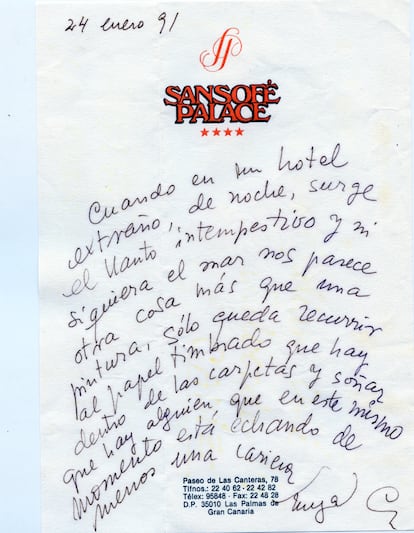 24 enero 91
SANSOFÉ
PALACE
Cuando en un hotel
extraño, de noche, surge
el llanto intempestivo y ni
siquiera el mar nos parece
otra cosa más que una
pintura, sólo queda recurrir
al papel timbrado que hay
dentro de las carpetas y soñar
que hay alguien que en este mismo
momento está echando de
menos una caricia
Paseo de Las Canteras, 78
Tlfnos.: 22 40 62 - 22 42 82
Télex: 95848 - Fax: 22 48 28
D.P. 35010 Las Palmas de
Gran Canaria